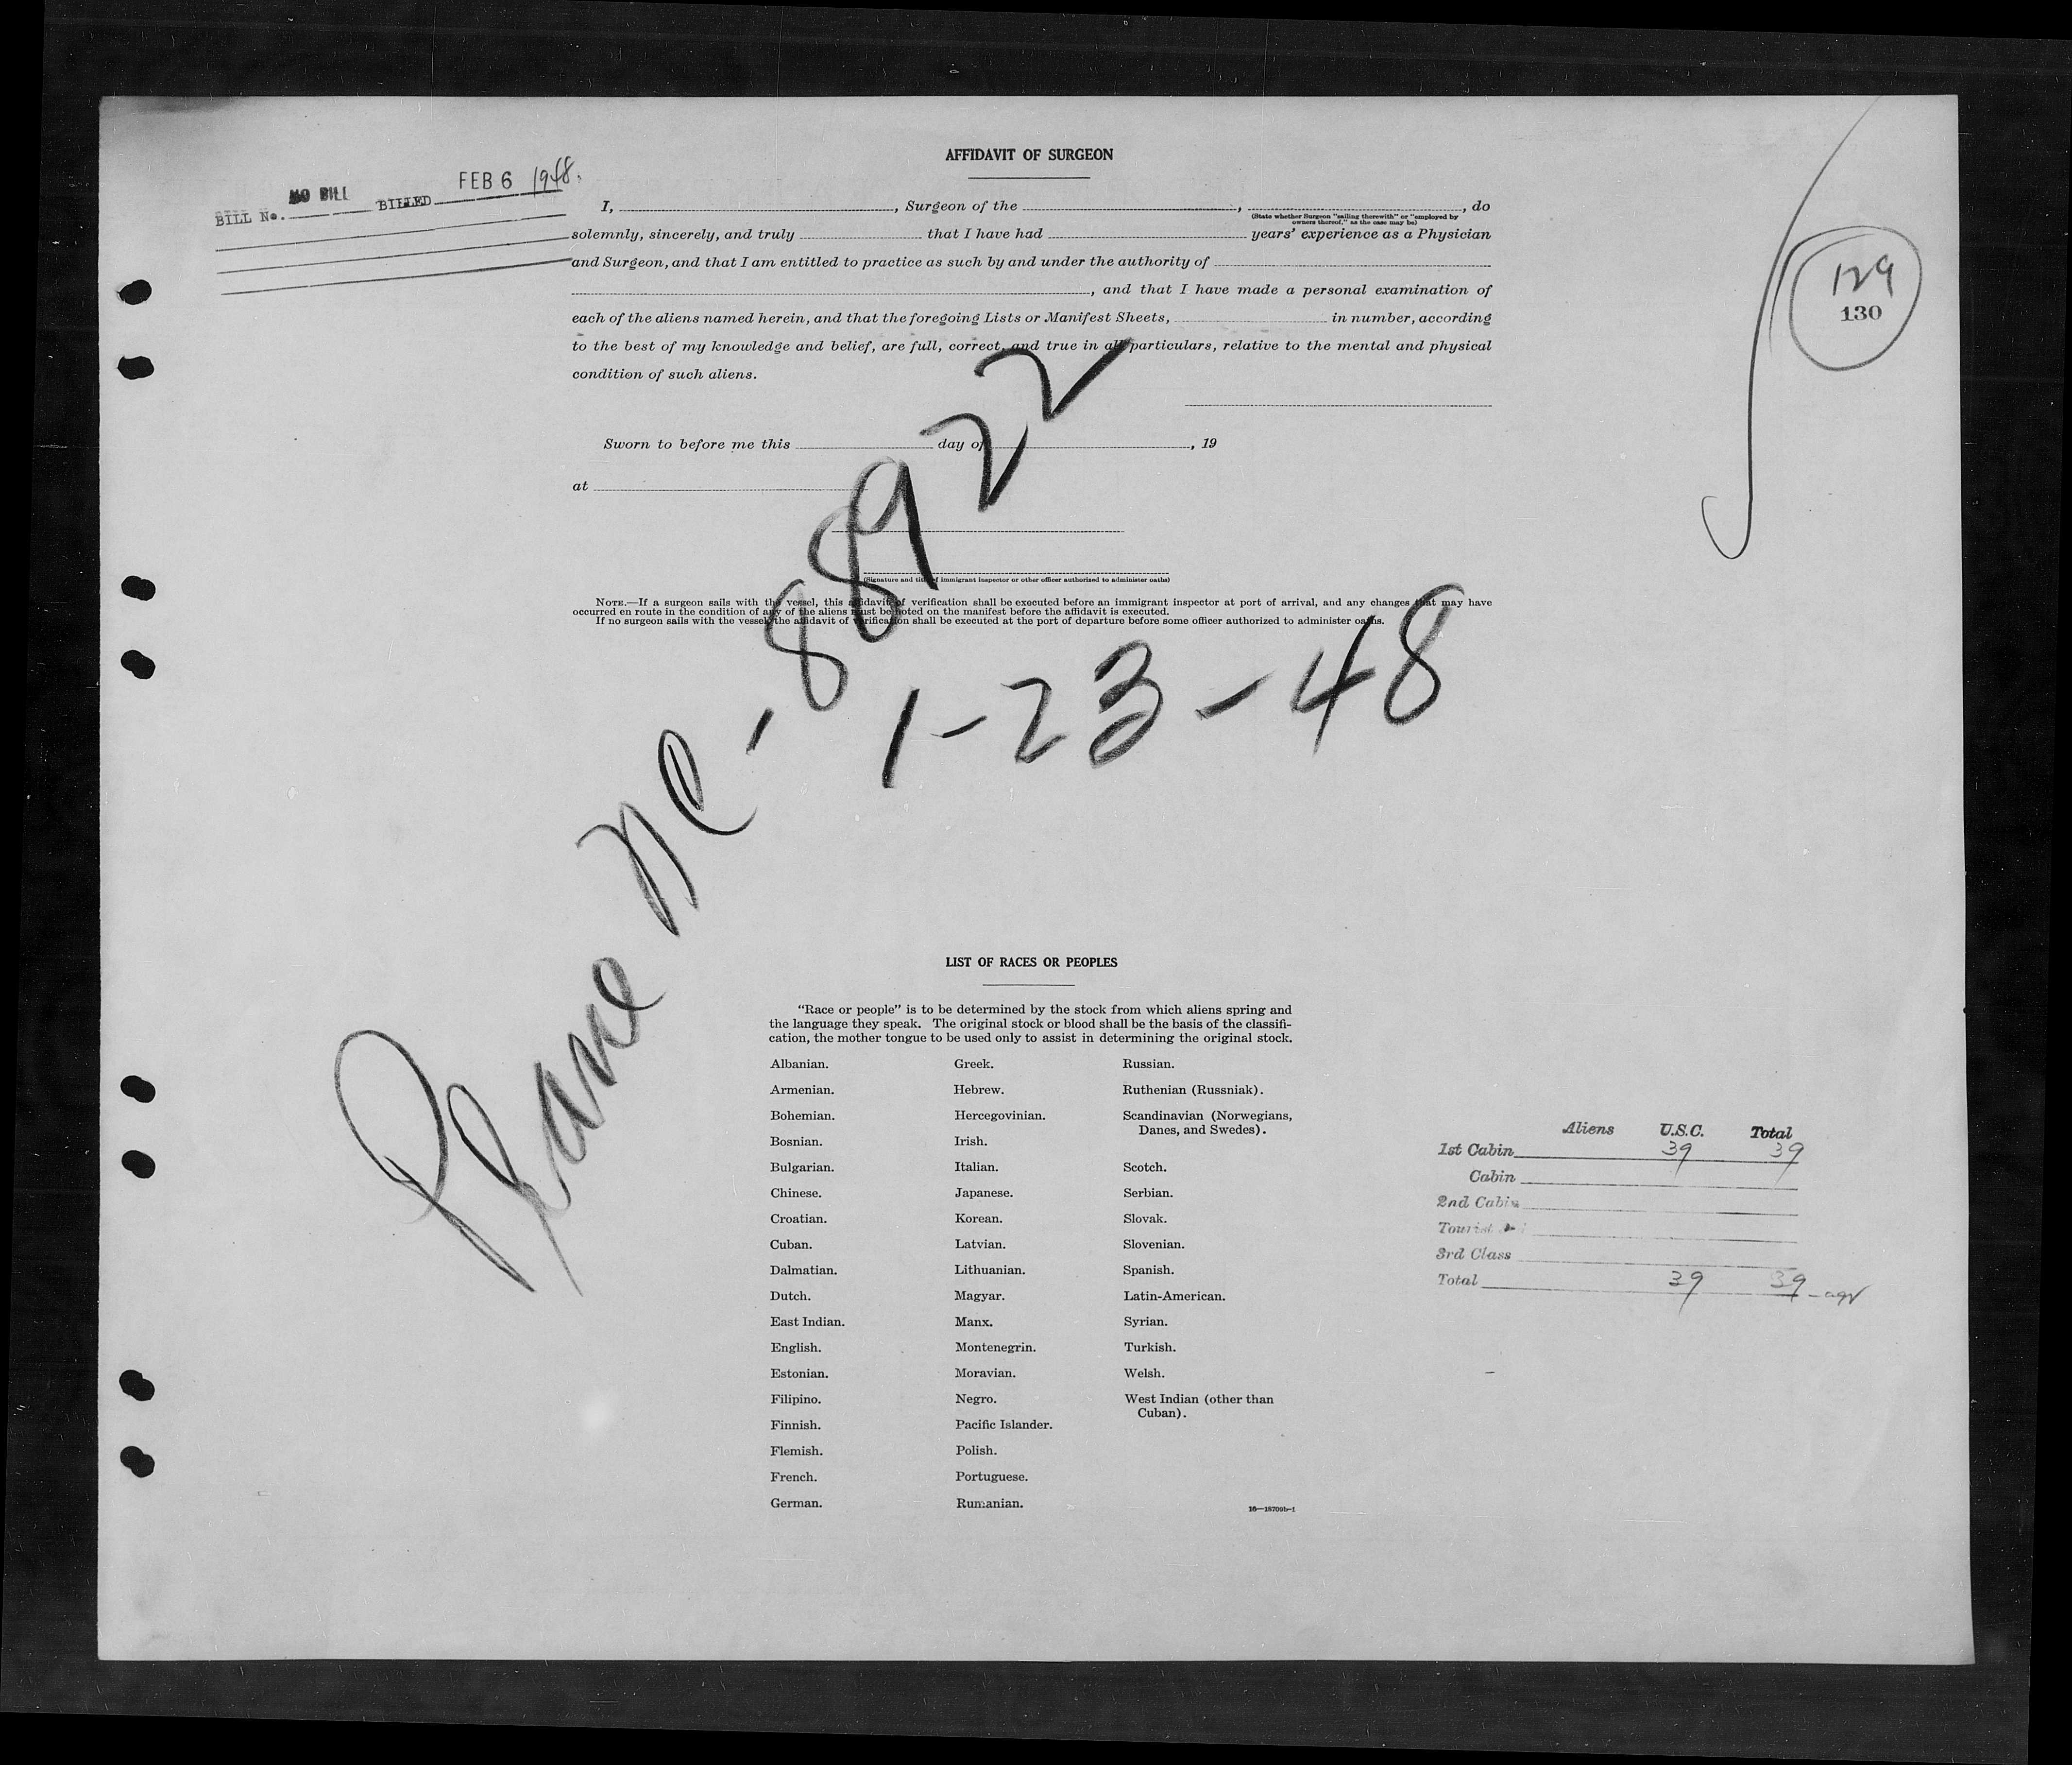 AFFIDAVIT OF SURGEON
BILL No. NO BILL BILLED FEB 6 1948.
I, , Surgeon of the , , do
(State whether Surgeon "sailing therewith" or "employed by
owners thereof," as the case may be)
solemnly, sincerely, and truly that I have had years' experience as a Physician
and Surgeon, and that I am entitled to practice as such by and under the authority of
, and that I have made a personal examination of
each of the aliens named herein, and that the foregoing Lists or Manifest Sheets, in number, according
to the best of my knowledge and belief, are full, correct, and true in all particulars, relative to the mental and physical
condition of such aliens.
129
130
Sworn to before me this day of , 19
at
(Signature and title of immigrant inspector or other officer authorized to administer oaths)
NOTE.—If a surgeon sails with the vessel, this affidavit of verification shall be executed before an immigrant inspector at port of arrival, and any changes that may have
occurred en route in the condition of any of the aliens must be noted on the manifest before the affidavit is executed.
If no surgeon sails with the vessel, the affidavit of verification shall be executed at the port of departure before some officer authorized to administer oaths.
Plane NC-88922
1-23-48
LIST OF RACES OR PEOPLES
"Race or people" is to be determined by the stock from which aliens spring and
the language they speak. The original stock or blood shall be the basis of the classifi-
cation, the mother tongue to be used only to assist in determining the original stock.
Albanian.
Armenian.
Bohemian.
Bosnian.
Bulgarian.
Chinese.
Croatian.
Cuban.
Dalmatian.
Dutch.
East Indian.
English.
Estonian.
Filipino.
Finnish.
Flemish.
French.
German.
Greek.
Hebrew.
Hercegovinian.
Irish.
Italian.
Japanese.
Korean.
Latvian.
Lithuanian.
Magyar.
Manx.
Montenegrin.
Moravian.
Negro.
Pacific Islander.
Polish.
Portuguese.
Rumanian.
Russian.
Ruthenian (Russniak).
Scandinavian (Norwegians,
Danes, and Swedes).
Scotch.
Serbian.
Slovak.
Slovenian.
Spanish.
Latin-American.
Syrian.
Turkish.
Welsh.
West Indian (other than
Cuban).
16—18709b-1
Aliens U.S.C. Total
1st Cabin 39 39
Cabin
2nd Cabin
Tourist
3rd Class
Total 39 39